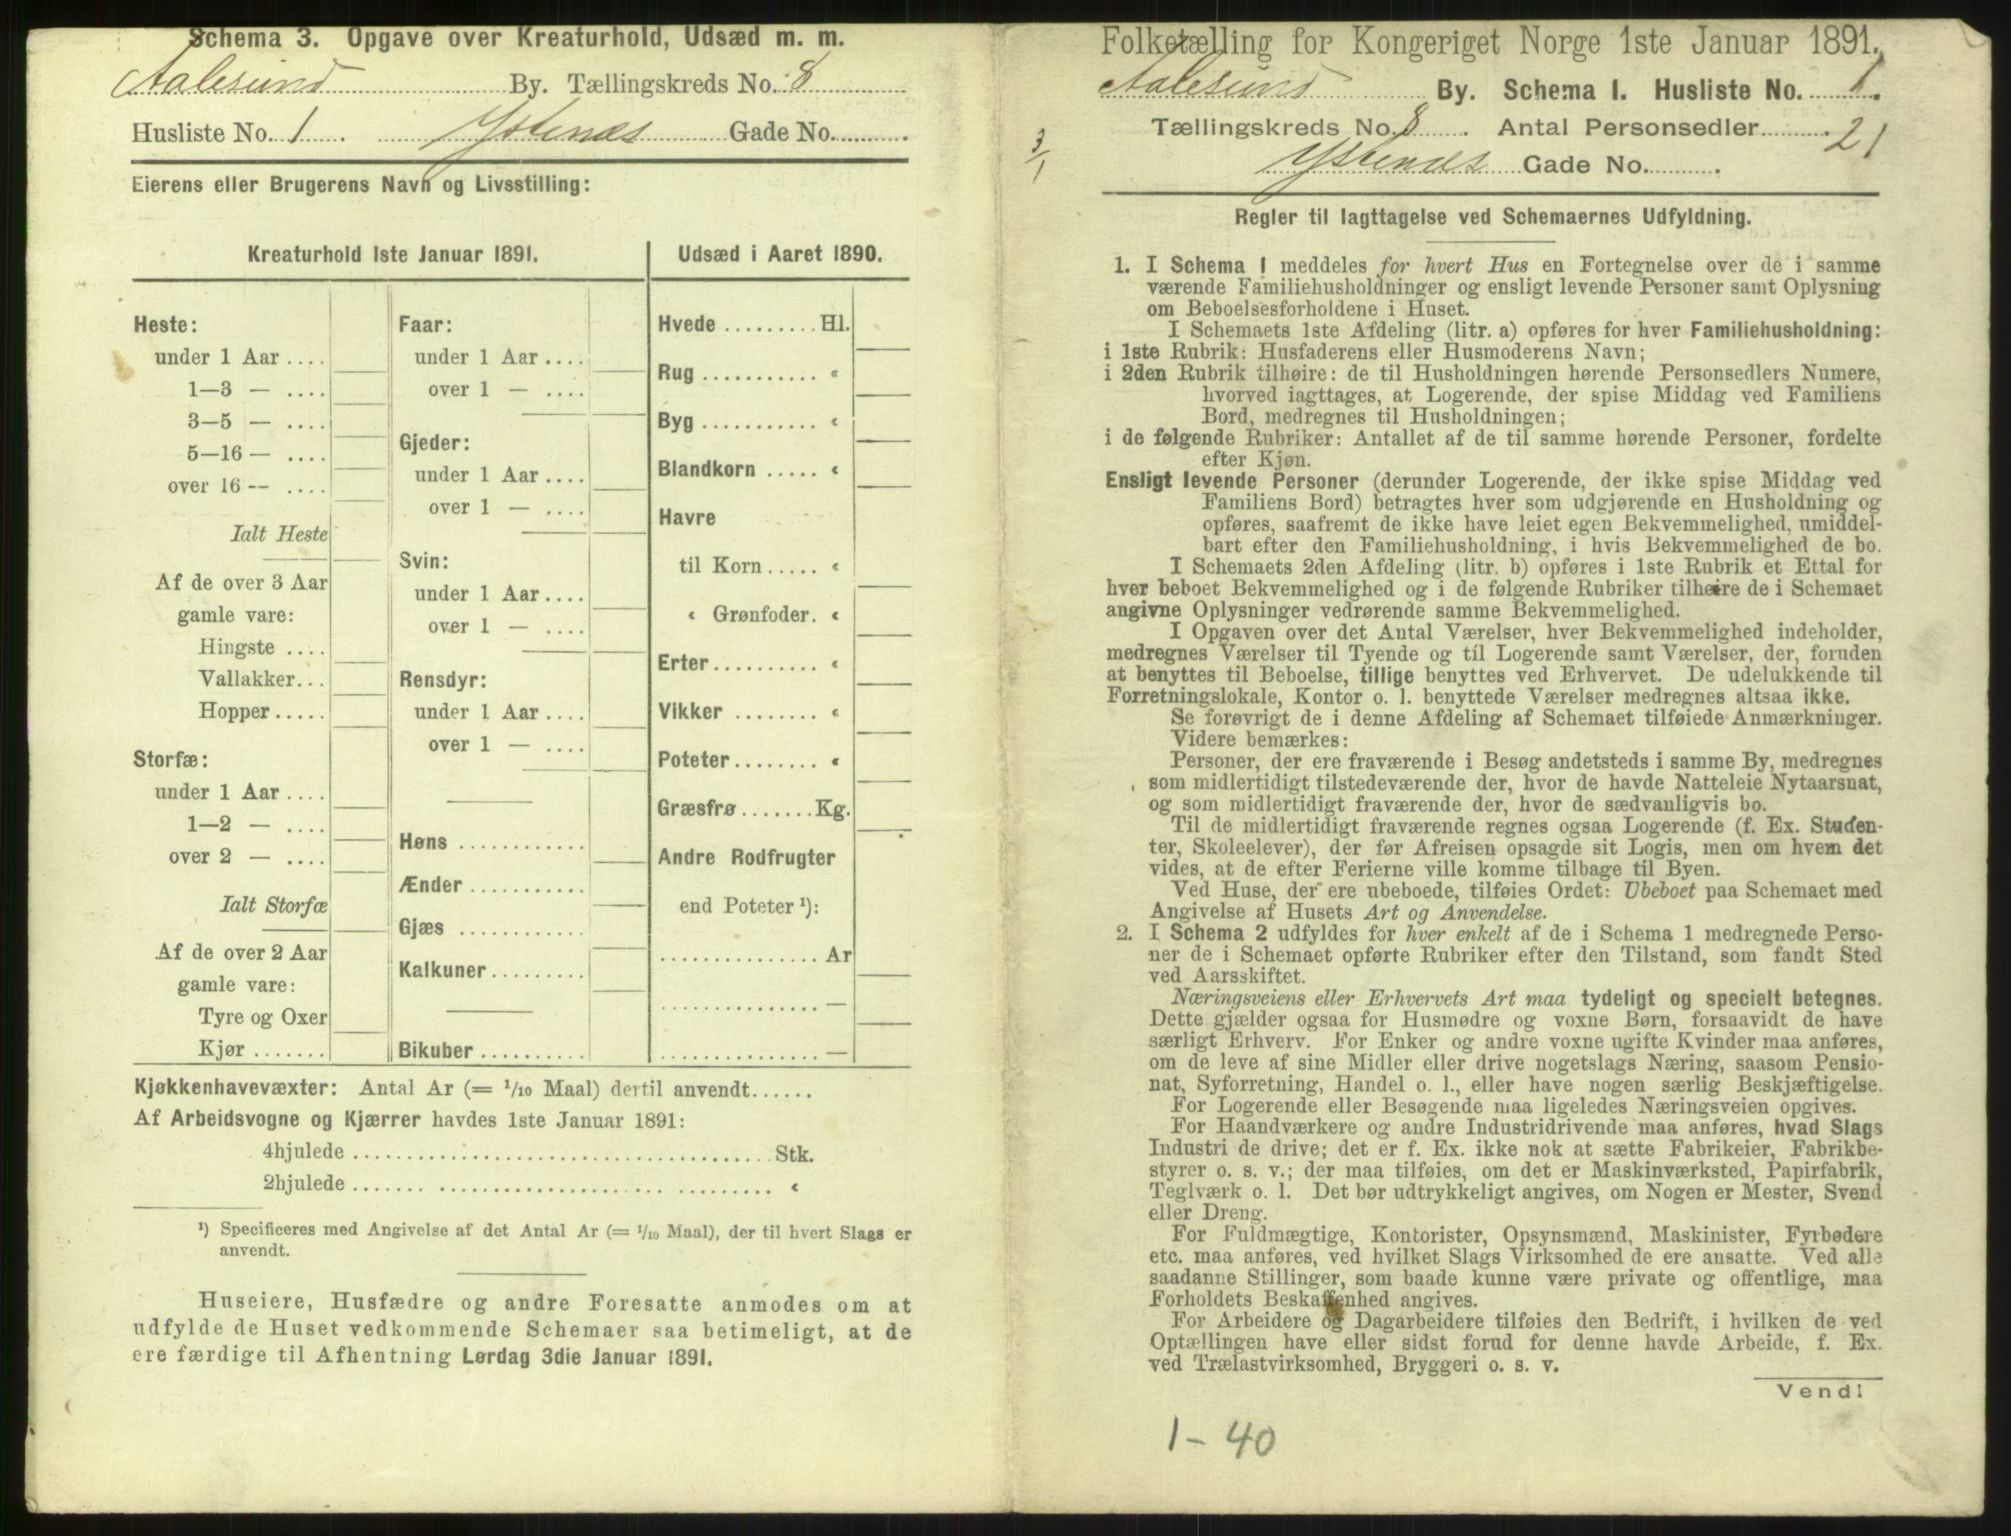 Schema 3. Opgave over Kreaturhold, Udsæd m. m.
Aalesund By. Tællingskreds No. 8
Husliste No. 1 . Ystenæs Gade No. .
Eierens eller Brugerens Navn og Livsstilling:
Kreaturhold 1ste Januar 1891.
Heste:
under 1 Aar ....
1—3 — ....
3—5 — ....
5—16 — ....
over 16 -- ....
Ialt Heste
Af de over 3 Aar
gamle vare:
Hingste ....
Vallakker...
Hopper.....
Storfæ:
under 1 Aar ....
1—2 — ....
over 2 — ....
Ialt Storfæ
Af de over 2 Aar
gamle vare:
Tyre og Oxer
Kjør .......
Faar:
under 1 Aar ....
over 1 — ....
Gjeder:
under 1 Aar ....
over 1 — ....
Svin:
under 1 Aar ....
over 1 — ....
Rensdyr:
under 1 Aar ....
over 1 — ....
Høns ............
Ænder ...........
Gjæs ............
Kalkuner.........
Bikuber ..........
Udsæd i Aaret 1890.
Hvede ......... Hl.
Rug ........... «
Byg ........... «
Blandkorn ..... «
Havre
til Korn ..... «
« Grønfoder. «
Erter.......... «
Vikker ........ «
Poteter........ «
Græsfrø....... Kg.
Andre Rodfrugter
end Poteter ¹):
............... Ar
............... —
............... —
Kjøkkenhavevæxter: Antal Ar (= 1/10 Maal) dertil anvendt......
Af Arbeidsvogne og Kjærrer havdes 1ste Januar 1891:
4hjulede ....................................... Stk.
2hjulede ....................................... «
¹) Specificeres med Angivelse af det Antal Ar (= 1/10 Maal), der til hvert Slags er
anvendt.
Huseiere, Husfædre og andre Foresatte anmodes om at
udfylde de Huset vedkommende Schemaer saa betimeligt, at de
ere færdige til Afhentning Lørdag 3die Januar 1891.
Folketælling for Kongeriget Norge 1ste Januar 1891.
Aalesund By. Schema I. Husliste No. 1.
Tællingskreds No. 8 . Antal Personsedler . 21
3/1
Ystenæs Gade No. .
Regler til Iagttagelse ved Schemaernes Udfyldning.
1. I Schema I meddeles for hvert Hus en Fortegnelse over de i samme
værende Familiehusholdninger og ensligt levende Personer samt Oplysning
om Beboelsesforholdene i Huset.
I Schemaets 1ste Afdeling (litr. a) opføres for hver Familiehusholdning:
i 1ste Rubrik: Husfaderens eller Husmoderens Navn;
i 2den Rubrik tilhøire: de til Husholdningen hørende Personsedlers Numere,
hvorved iagttages, at Logerende, der spise Middag ved Familiens
Bord, medregnes til Husholdningen;
i de følgende Rubriker: Antallet af de til samme hørende Personer, fordelte
efter Kjøn.
Ensligt levende Personer (derunder Logerende, der ikke spise Middag ved
Familiens Bord) betragtes hver som udgjørende en Husholdning og
opføres, saafremt de ikke have leiet egen Bekvemmelighed, umiddel-
bart efter den Familiehusholdning, i hvis Bekvemmelighed de bo.
I Schemaets 2den Afdeling (litr. b) opføres i 1ste Rubrik et Ettal for
hver beboet Bekvemmelighed og i de følgende Rubriker tilhøire de i Schemaet
angivne Oplysninger vedrørende samme Bekvemmelighed.
I Opgaven over det Antal Værelser, hver Bekvemmelighed indeholder,
medregnes Værelser til Tyende og til Logerende samt Værelser, der, foruden
at benyttes til Beboelse, tillige benyttes ved Erhvervet. De udelukkende til
Forretningslokale, Kontor o. l. benyttede Værelser medregnes altsaa ikke.
Se forøvrigt de i denne Afdeling af Schemaet tilføiede Anmærkninger.
Videre bemærkes:
Personer, der ere fraværende i Besøg andetsteds i samme By, medregnes
som midlertidigt tilstedeværende der, hvor de havde Natteleie Nytaarsnat,
og som midlertidigt fraværende der, hvor de sædvanligvis bo.
Til de midlertidigt fraværende regnes ogsaa Logerende (f. Ex. Studen-
ter, Skoleelever), der før Afreisen opsagde sit Logis, men om hvem det
vides, at de efter Ferierne ville komme tilbage til Byen.
Ved Huse, der ere ubeboede, tilføies Ordet: Ubeboet paa Schemaet med
Angivelse af Husets Art og Anvendelse.
2. I Schema 2 udfyldes for hver enkelt af de i Schema 1 medregnede Perso-
ner de i Schemaet opførte Rubriker efter den Tilstand, som fandt Sted
ved Aarsskiftet.
Næringsveiens eller Erhvervets Art maa tydeligt og specielt betegnes.
Dette gjælder ogsaa for Husmødre og voxne Børn, forsaavidt de have
særligt Erhverv. For Enker og andre voxne ugifte Kvinder maa anføres,
om de leve af sine Midler eller drive nogetslags Næring, saasom Pensio-
nat, Syforretning, Handel o. l., eller have nogen særlig Beskjæftigelse.
For Logerende eller Besøgende maa ligeledes Næringsveien opgives.
For Haandværkere og andre Industridrivende maa anføres, hvad Slags
Industri de drive; det er f. Ex. ikke nok at sætte Fabrikeier, Fabrikbe-
styrer o. s. v.; der maa tilføies, om det er Maskinværksted, Papirfabrik,
Teglværk o. l. Det bør udtrykkeligt angives, om Nogen er Mester, Svend
eller Dreng.
For Fuldmægtige, Kontorister, Opsynsmænd, Maskinister, Fyrbødere
etc. maa anføres, ved hvilket Slags Virksomhed de ere ansatte. Ved alle
saadanne Stillinger, som baade kunne være private og offentlige, maa
Forholdets Beskaffenhed angives.
For Arbeidere og Dagarbeidere tilføies den Bedrift, i hvilken de ved
Optællingen have eller sidst forud for denne havde Arbeide, f. Ex.
ved Trælastvirksomhed, Bryggeri o. s. v.
Vend!
1-40